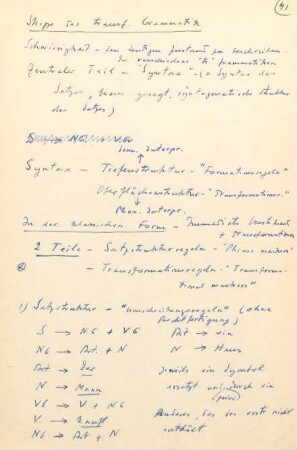 41
Skizze der transf. Grammatik
Schwierigkeit - den heutigen Zustand zu beschreiben.
In verschiedenen "tr" Grammatiken
Zentraler Teil - "Syntax" - (= Syntax des
Satzes, besser gesagt, syntagmatische Struktur
des Satzes)
Sem. Interpr.
Syntax - Tiefenstruktur - "Formationsregeln"
Oberflächenstruktur - "Transformationsr."
Phon. Interpr.
In der klassischen Form - Immediate Constituents
+ Transformationen
2 Teile - Satzstrukturregeln - "Phrase markers"
- Transformationsregeln - "Transforma-
tional markers"
1) Satzstruktur - "Umschreibungsregeln" (ohne
Rechtfertigung)
S → NG + VG Art → ein
NG → Art. + N N → Haus
Art → der jeweils ein Symbol
N → Mann ersetzt und durch ein
VG → V + NG anderes, das das erste nicht
V → kauft enthält
NG → Art + N